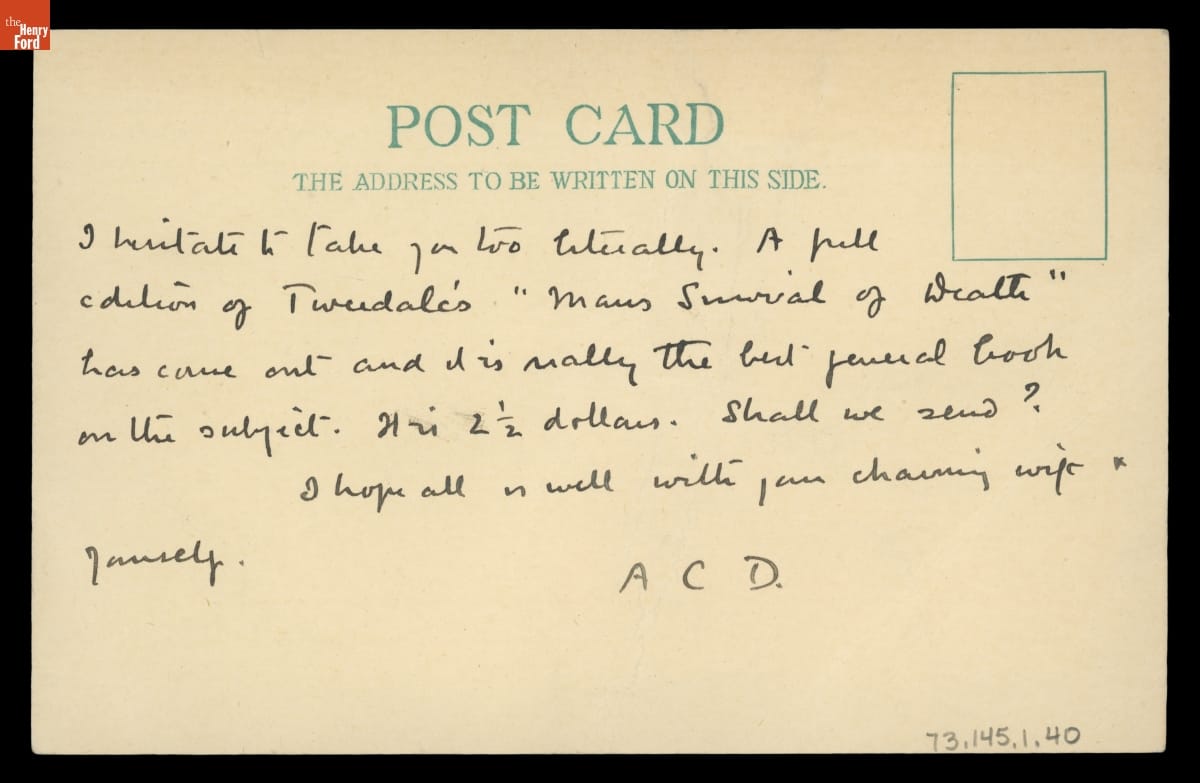 the
Henry
Ford
POST CARD
THE ADDRESS TO BE WRITTEN ON THIS SIDE.
I hesitate to take you too literally. A full
edition of Tweedale's "Mans Survival of Death"
has come out and it is really the best general book
on the subject. It is 2 1/2 dollars. Shall we send?
I hope all is well with your charming wife &
yourself.
A C D.
73.145.1.40